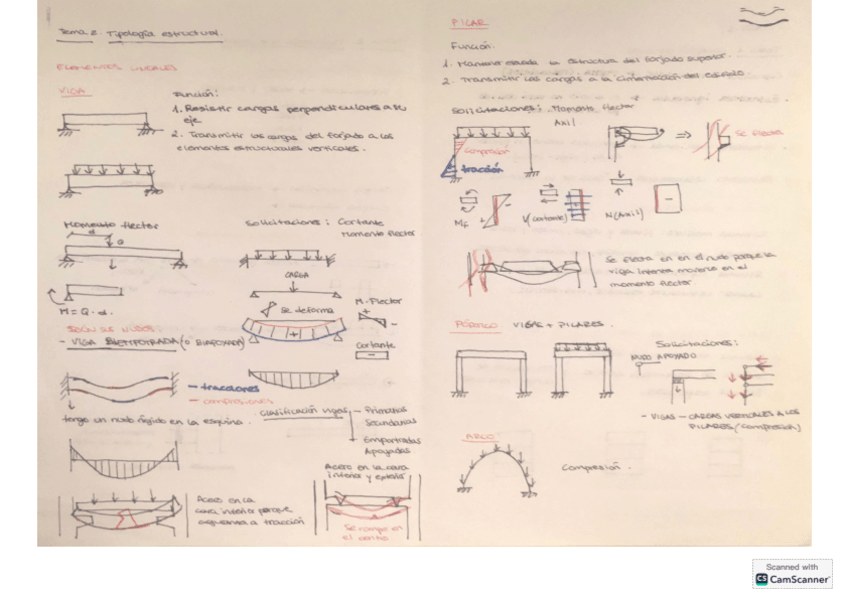 Tema 2. Tipología estructural.
ELEMENTOS LINEALES
VIGA
Función:
1. Resistir cargas perpendiculares a su
eje
2. Transmitir las cargas del forjado a los
elementos estructurales verticales.
Momento flector
d
Q
M = Q · d.
Solicitaciones: Cortante
Momento flector
CARGA
Se deforma
M. Flector
+
-
Cortante
-
+
SEGÚN SUS NUDOS:
- VIGA EMPOTRADA (o BIAPOYADA)
- tracciones
- compresiones
tengo un nudo rígido en la esquina.
Clasificación vigas - Primarias
Secundarias
Empotradas
Apoyadas
Acero en la
cara inferior porque
a tracción
Acero en la cara
inferior y
Se rompe en
el centro
PILAR
Función.
1. Mantener elevada la estructura del forjado superior.
2. Transmitir las cargas a la cimentación del edificio
Solicitaciones: Momento flector
Axil
compresión
tracción
⇒
Se flecta
MF
+
-
V (cortante)
N (Axil)
-
Se flecta en en el nudo porque la
viga intenta moverse en el
momento flector
PÓRTICO VIGAS + PILARES.
Solicitaciones:
NUDO APOYADO
- VIGAS - CARGAS VERTICALES A LOS
PILARES (compresión)
ARCO
Compresión.
Scanned with
CS CamScanner